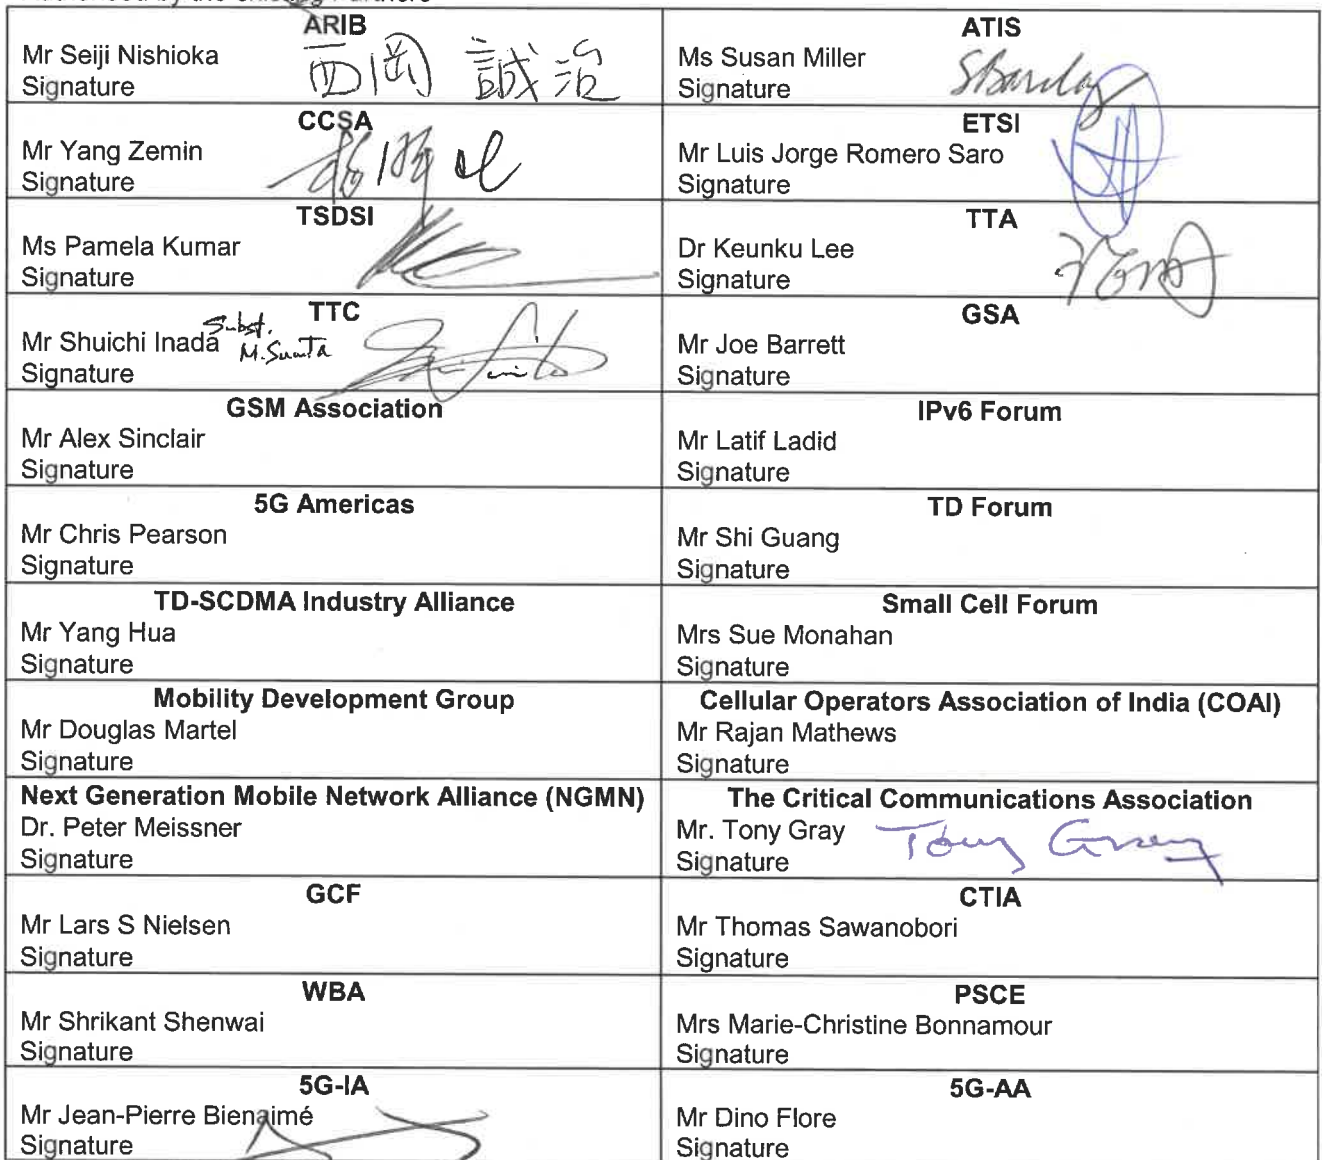 ARIB
Mr Seiji Nishioka
西岡 誠治
Signature
ATIS
Ms Susan Miller
Signature
CCSA
Mr Yang Zemin
Signature
ETSI
Mr Luis Jorge Romero Saro
Signature
TSDSI
Ms Pamela Kumar
Signature
TTA
Dr Keunku Lee
Signature
TTC
Subst.
Mr Shuichi Inada
Signature
GSA
Mr Joe Barrett
Signature
GSM Association
Mr Alex Sinclair
Signature
IPv6 Forum
Mr Latif Ladid
Signature
5G Americas
Mr Chris Pearson
Signature
TD Forum
Mr Shi Guang
Signature
TD-SCDMA Industry Alliance
Mr Yang Hua
Signature
Small Cell Forum
Mrs Sue Monahan
Signature
Mobility Development Group
Mr Douglas Martel
Signature
Cellular Operators Association of India (COAI)
Mr Rajan Mathews
Signature
Next Generation Mobile Network Alliance (NGMN)
Dr. Peter Meissner
Signature
The Critical Communications Association
Mr. Tony Gray Tony Gray
Signature
GCF
Mr Lars S Nielsen
Signature
CTIA
Mr Thomas Sawanobori
Signature
WBA
Mr Shrikant Shenwai
Signature
PSCE
Mrs Marie-Christine Bonnamour
Signature
5G-IA
Mr Jean-Pierre Bienaimé
Signature
5G-AA
Mr Dino Flore
Signature